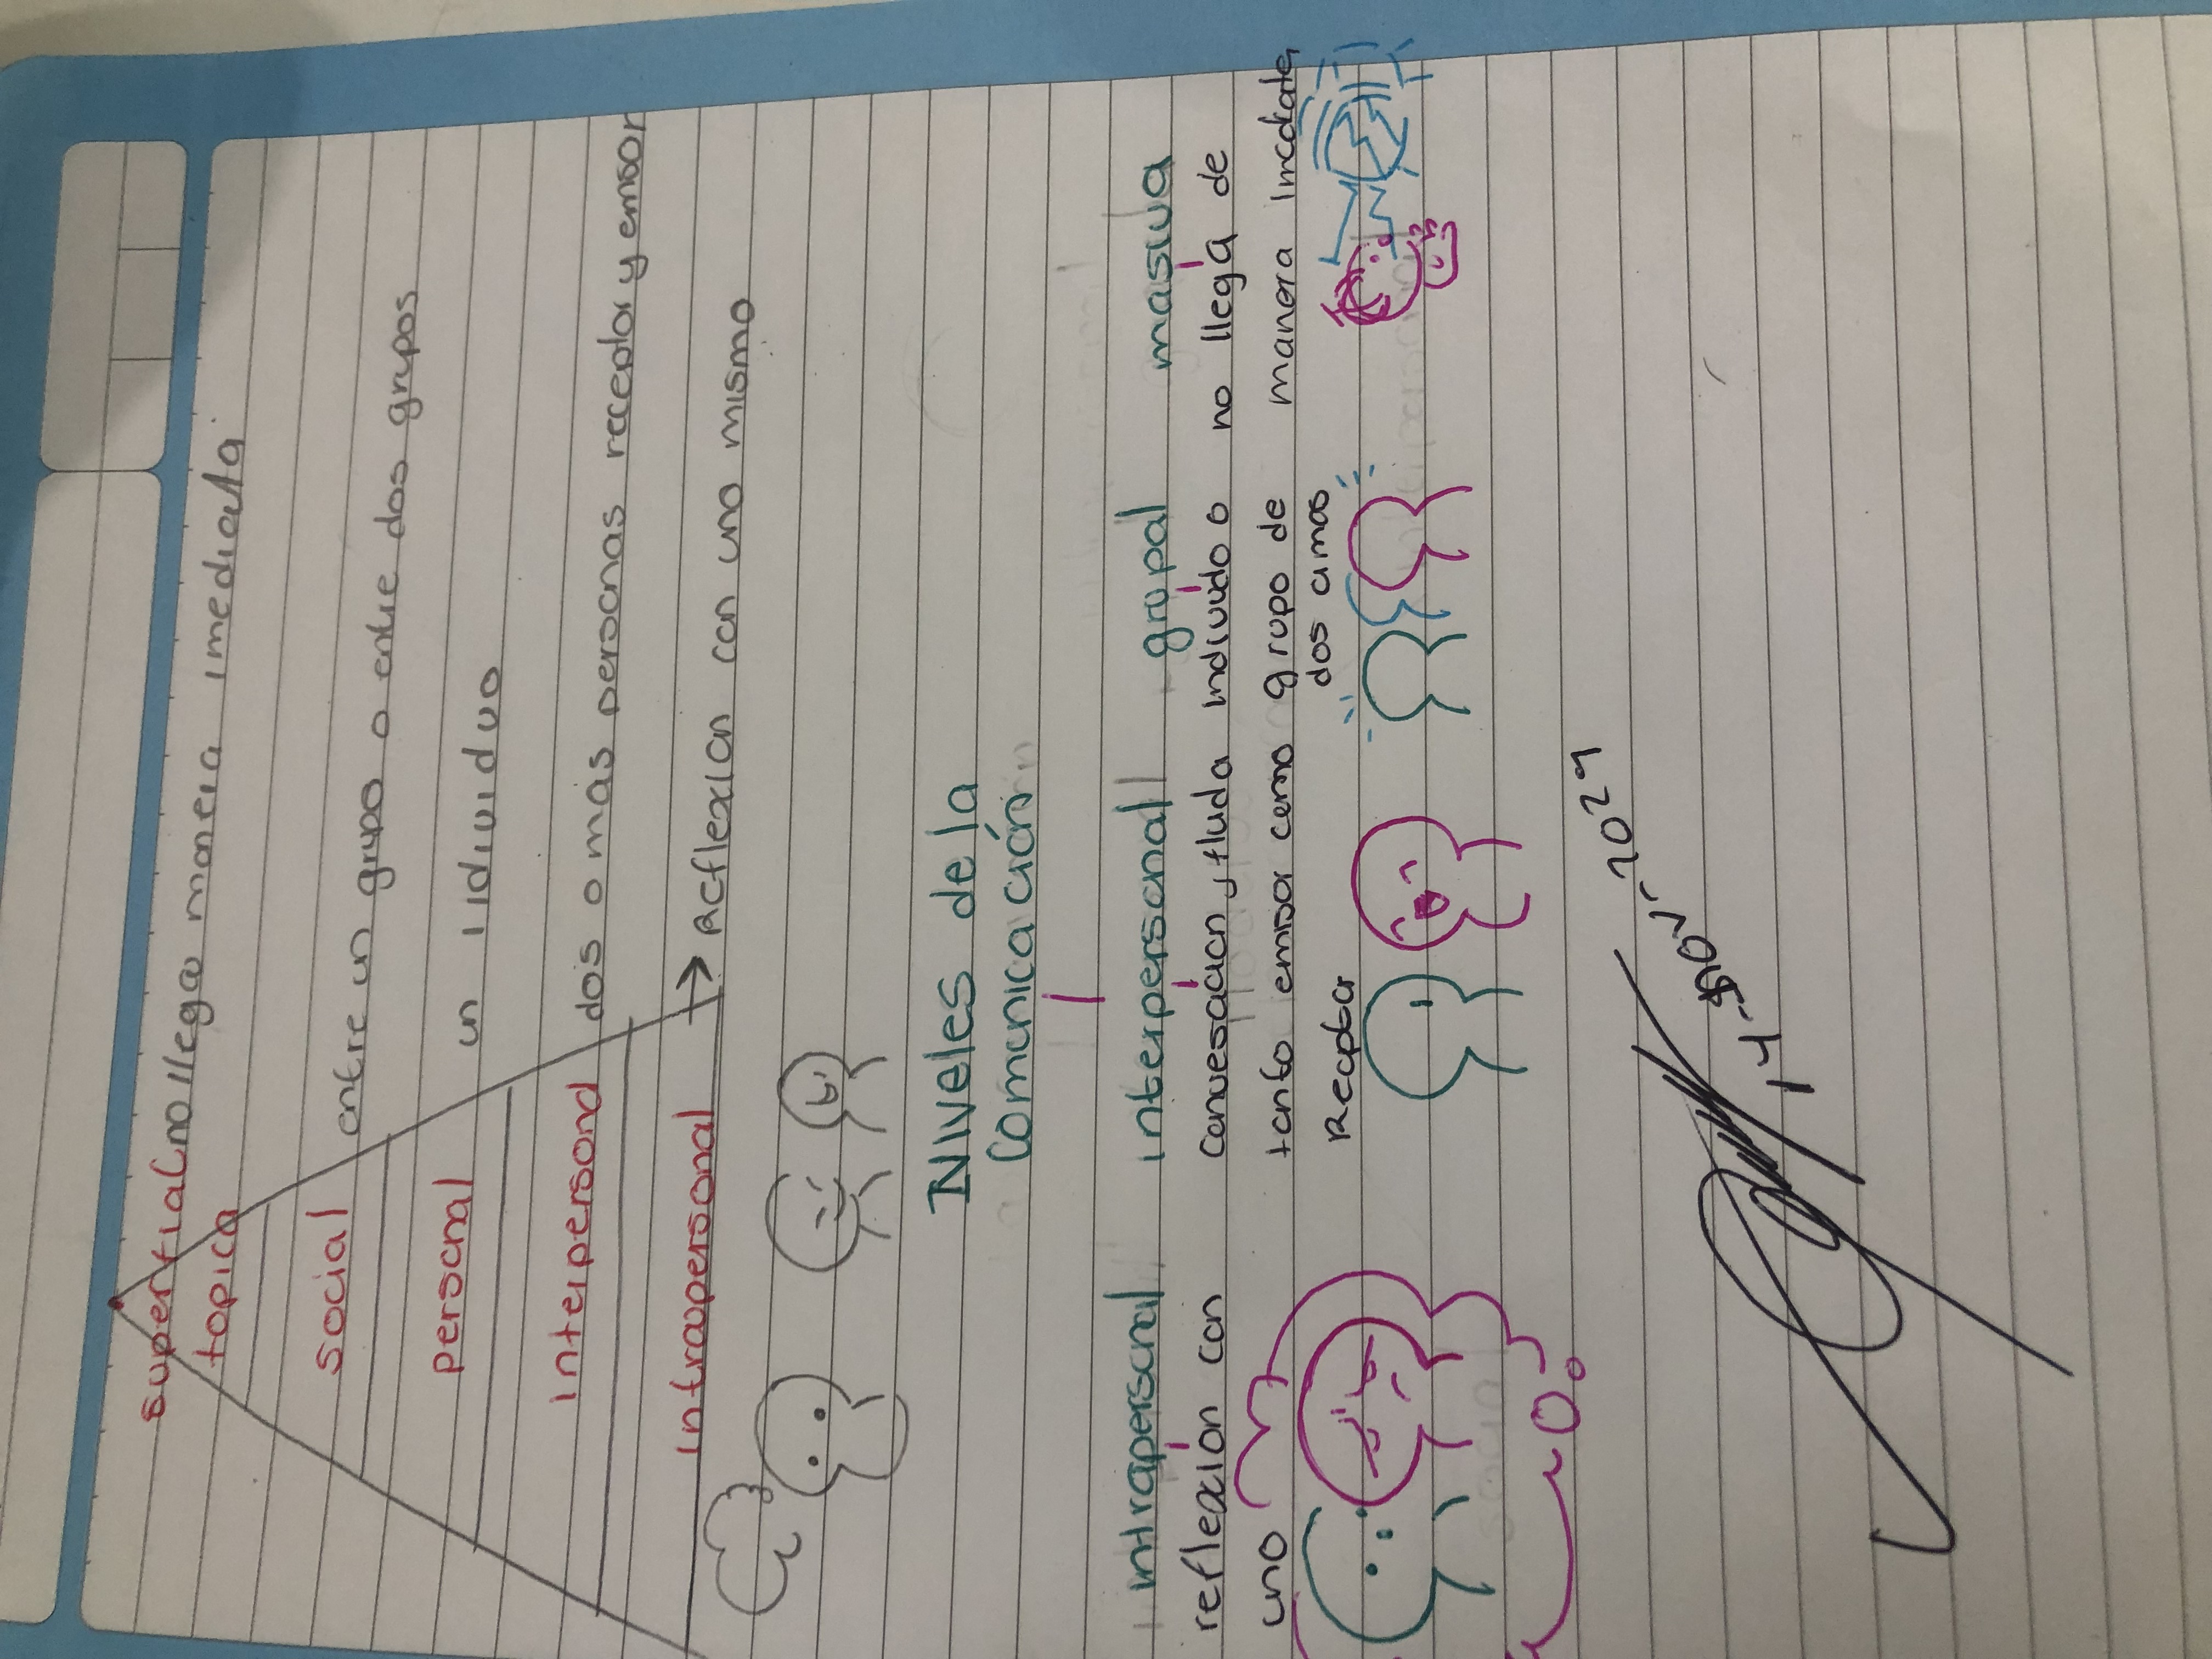 superficial no llega manera imediata
topica
social entre un grupo o entre dos grupos
personal un iidividuo
interpersonal dos o más personas receptor y emisor
intrapersonal → Reflexion con uno mismo
Niveles de la
Comunicación
intrapersonal interpersonal grupal masiva
reflexion con conversacion fluida individuo o no llega de
uno tanto emisor como grupo de manera imediata
Receptor dos a mas
14-nov-2024